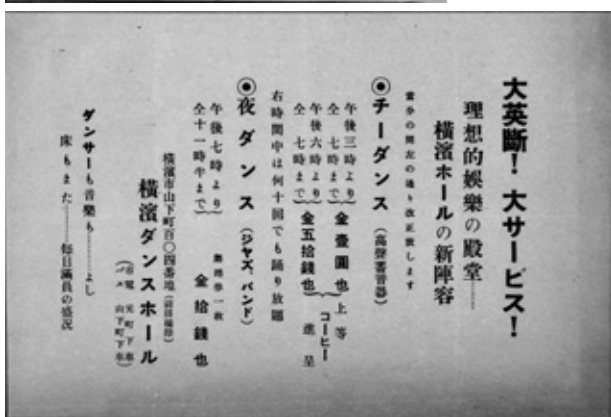 大英斷！大サービス！
理想的娯樂の殿堂――
橫濱ホールの新陣容
當分の間左の通り改正致します
◉チーダンス（高聲蓄音器）
午後三時より
仝 七時まで
金壹圓也
午後六時より
仝 七時まで
金五拾錢也
上等コーヒー進呈
右時間中は何十回でも踊り放題
◉夜ダンス（ジャズ、バンド）
午後七時より
仝十一時半まで
一枚
金拾錢也
橫濱市山下町百〇四番地
橫濱ダンスホール
市電 元町下車
バス 山下町下車
ダンサーも音樂も………よし
床もまた………每日滿員の盛況